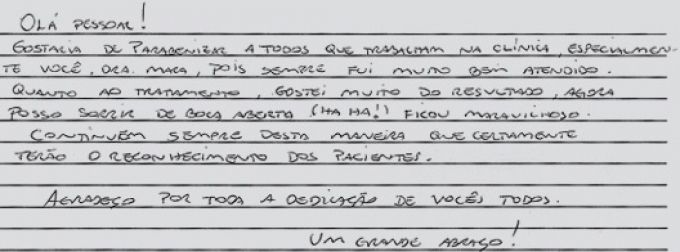 OLÁ PESSOAL!
GOSTARIA DE PARABENIZAR A TODOS QUE TRABALHAM NA CLÍNICA, ESPECIALMEN-
TE VOCÊ, DRA. MARA, POIS SEMPRE FUI MUITO BEM ATENDIDO.
QUANTO AO TRATAMENTO, GOSTEI MUITO DO RESULTADO, AGORA
POSSO SORRIR DE BOCA ABERTA (HA HA!) FICOU MARAVILHOSO.
CONTINUEM SEMPRE DESTA MANEIRA QUE CERTAMENTE
TERÃO O RECONHECIMENTO DOS PACIENTES.
AGRADEÇO POR TODA A DEDICAÇÃO DE VOCÊS TODOS.
UM GRANDE ABRAÇO!